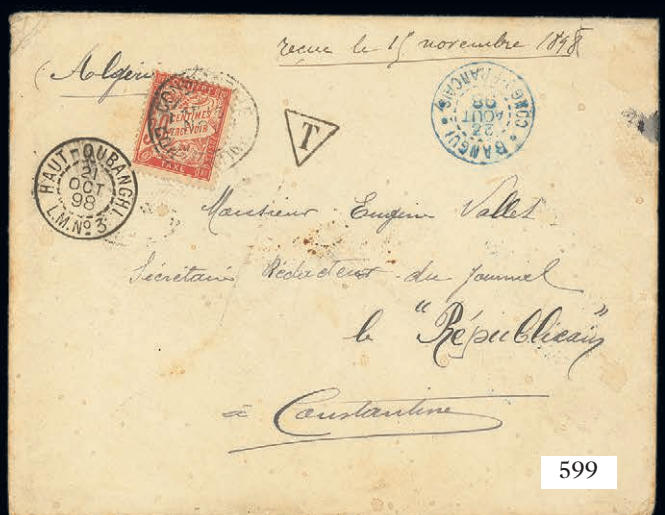 reçue le 15 novembre 1898
(Algérie
30 CENTIMES
A PERCEVOIR
TAXE
T
BANGUI
23
AOUT
98
CONGO FRANCAIS
HAUT-OUBANGHI
21
OCT
98
L.M. Nº 3
Monsieur Eugène Vallet
Secrétaire Rédacteur du Journal
le "Républicain"
à Constantine
599